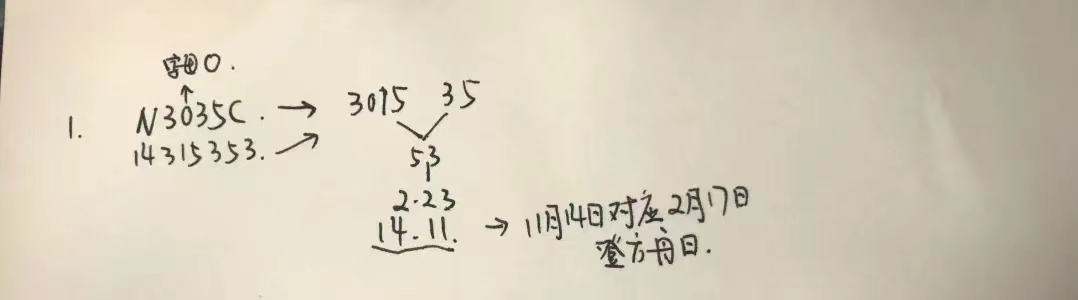 字母O.
↑
1. N3O35C. → 3015 35
14315353. →
53
2.23
14.11. → 11月14日对应2月17日
登方舟日.